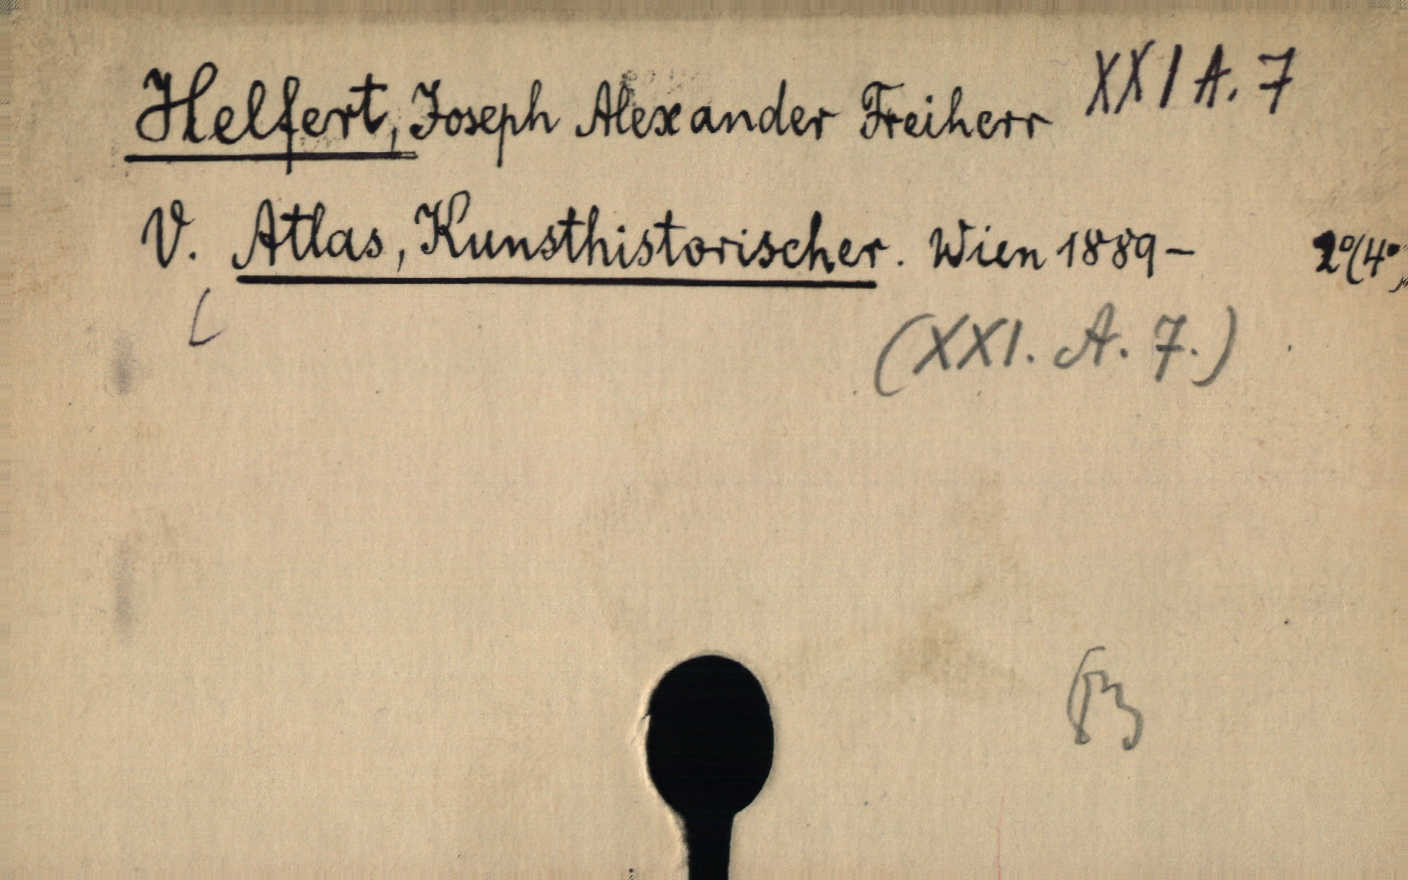 Helfert, Joseph Alexander Freiherr XXI A. 7
V. Atlas, Kunsthistorischer. Wien 1889- 2°(4°)
(XXI. A. 7.)